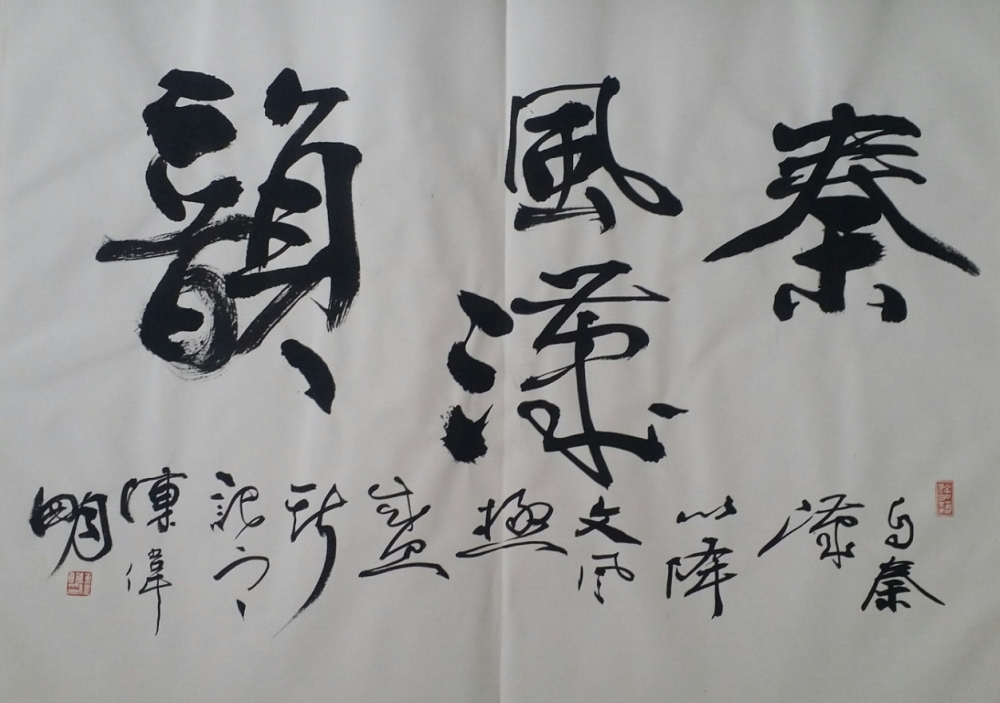 秦
風漢
韻
自秦
漢
以降
文风
極
盛
記之
陳偉
明